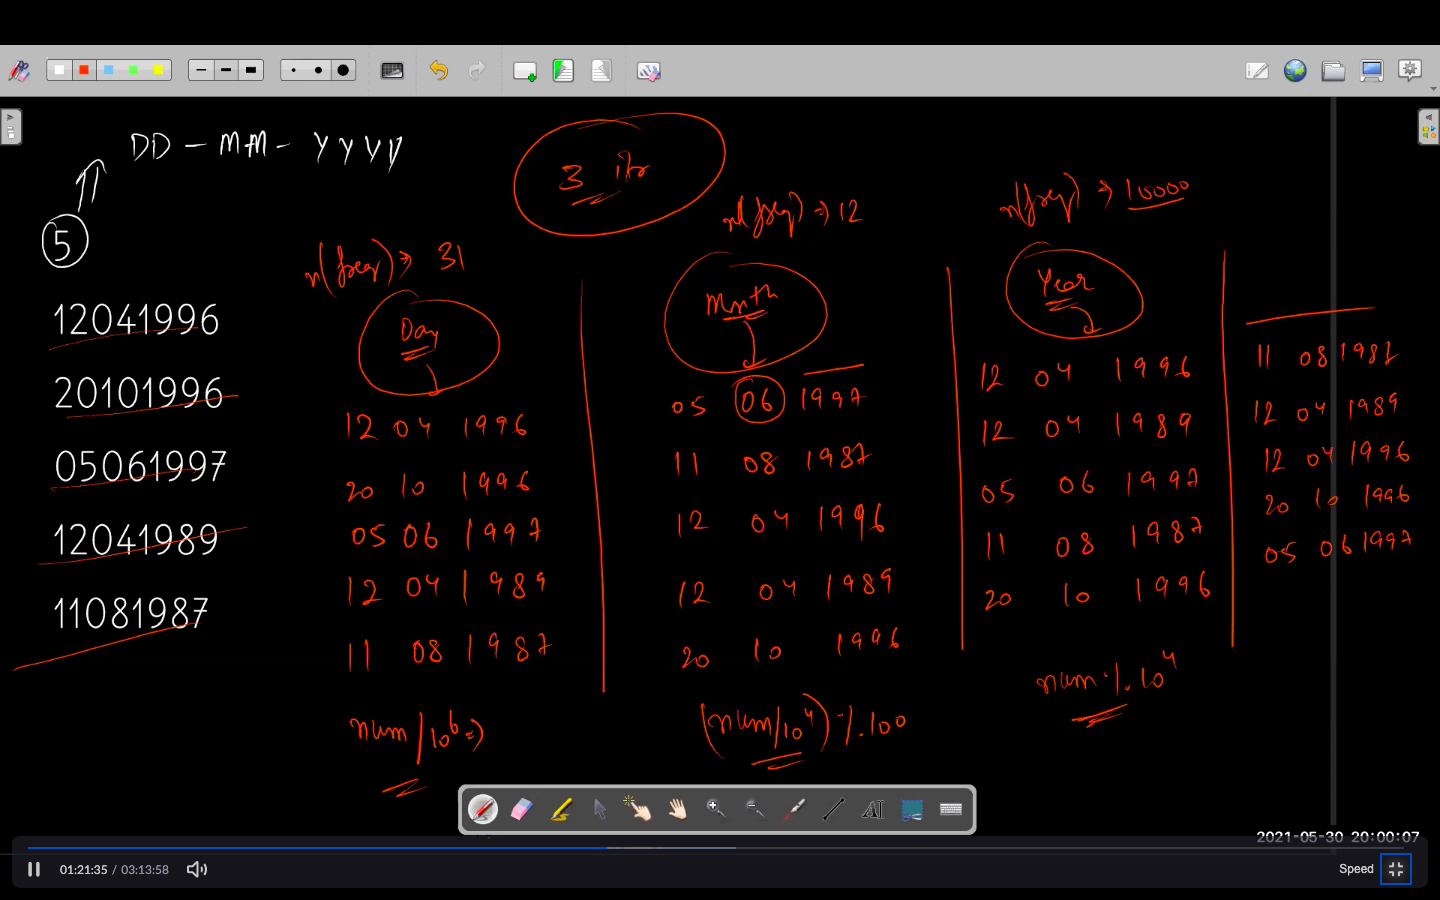 DD - MM - YYYY
3 itr
n(freq) => 12
n(freq) => 10000
5
n(freq) => 31
12041996
20101996
05061997
12041989
11081987
Day
12 04 1996
20 10 1996
05 06 1997
12 04 1989
11 08 1987
num / 10^6 =>
Mnth
05 06 1997
11 08 1987
12 04 1996
12 04 1989
20 10 1996
(num/10^4) % 100
Year
12 04 1996
12 04 1989
05 06 1997
11 08 1987
20 10 1996
num % 10^4
11 08 1987
12 04 1989
12 04 1996
20 10 1996
05 06 1997
AI
2021-05-30 20:00:07
01:21:35 / 03:13:58
Speed